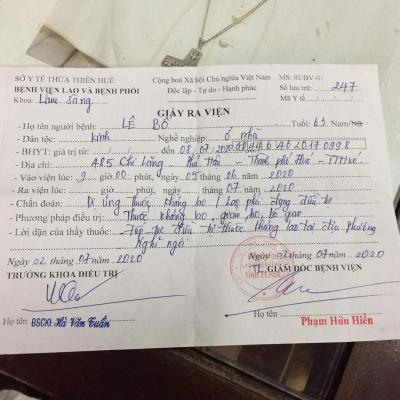 SỞ Y TẾ THỪA THIÊN HUẾ
BỆNH VIỆN LAO VÀ BỆNH PHỔI
Khoa: Lâm Sàng
Cộng hoà Xã hội Chủ nghĩa Việt Nam
Độc lập - Tự do - Hạnh phúc
MS: 01/BV-01
Số lưu trữ: 247
Mã Y tế
GIẤY RA VIỆN
- Họ tên người bệnh: LÊ BỐ Tuổi: 63 Nam/Nữ
- Dân tộc: Kinh Nghề nghiệp: Ở nhà
- BHYT: giá trị từ: đến 08/07/2020
- Địa chỉ: Chi Lăng Phú Hậu - Thành phố Huế - TTHuế
- Vào viện lúc: 9 giờ, 00 phút, ngày 09 tháng 06 năm 2020
- Ra viện lúc: giờ, phút, ngày tháng 07 năm 2020
- Chẩn đoán: Dị ứng thuốc kháng lao / Lao phổi đang điều trị
- Phương pháp điều trị: Thuốc kháng lao, giảm ho, bổ gan
- Lời dặn của thầy thuốc: Tiếp tục điều trị thuốc kháng lao tại địa phương
Nghỉ ngơi
Ngày 02 tháng 07 năm 2020
TRƯỞNG KHOA ĐIỀU TRỊ
Họ tên: BSCKI. Hà Văn Tuấn
Ngày 02 tháng 07 năm 2020
GIÁM ĐỐC BỆNH VIỆN
Họ tên: Phạm Hữu Hiền